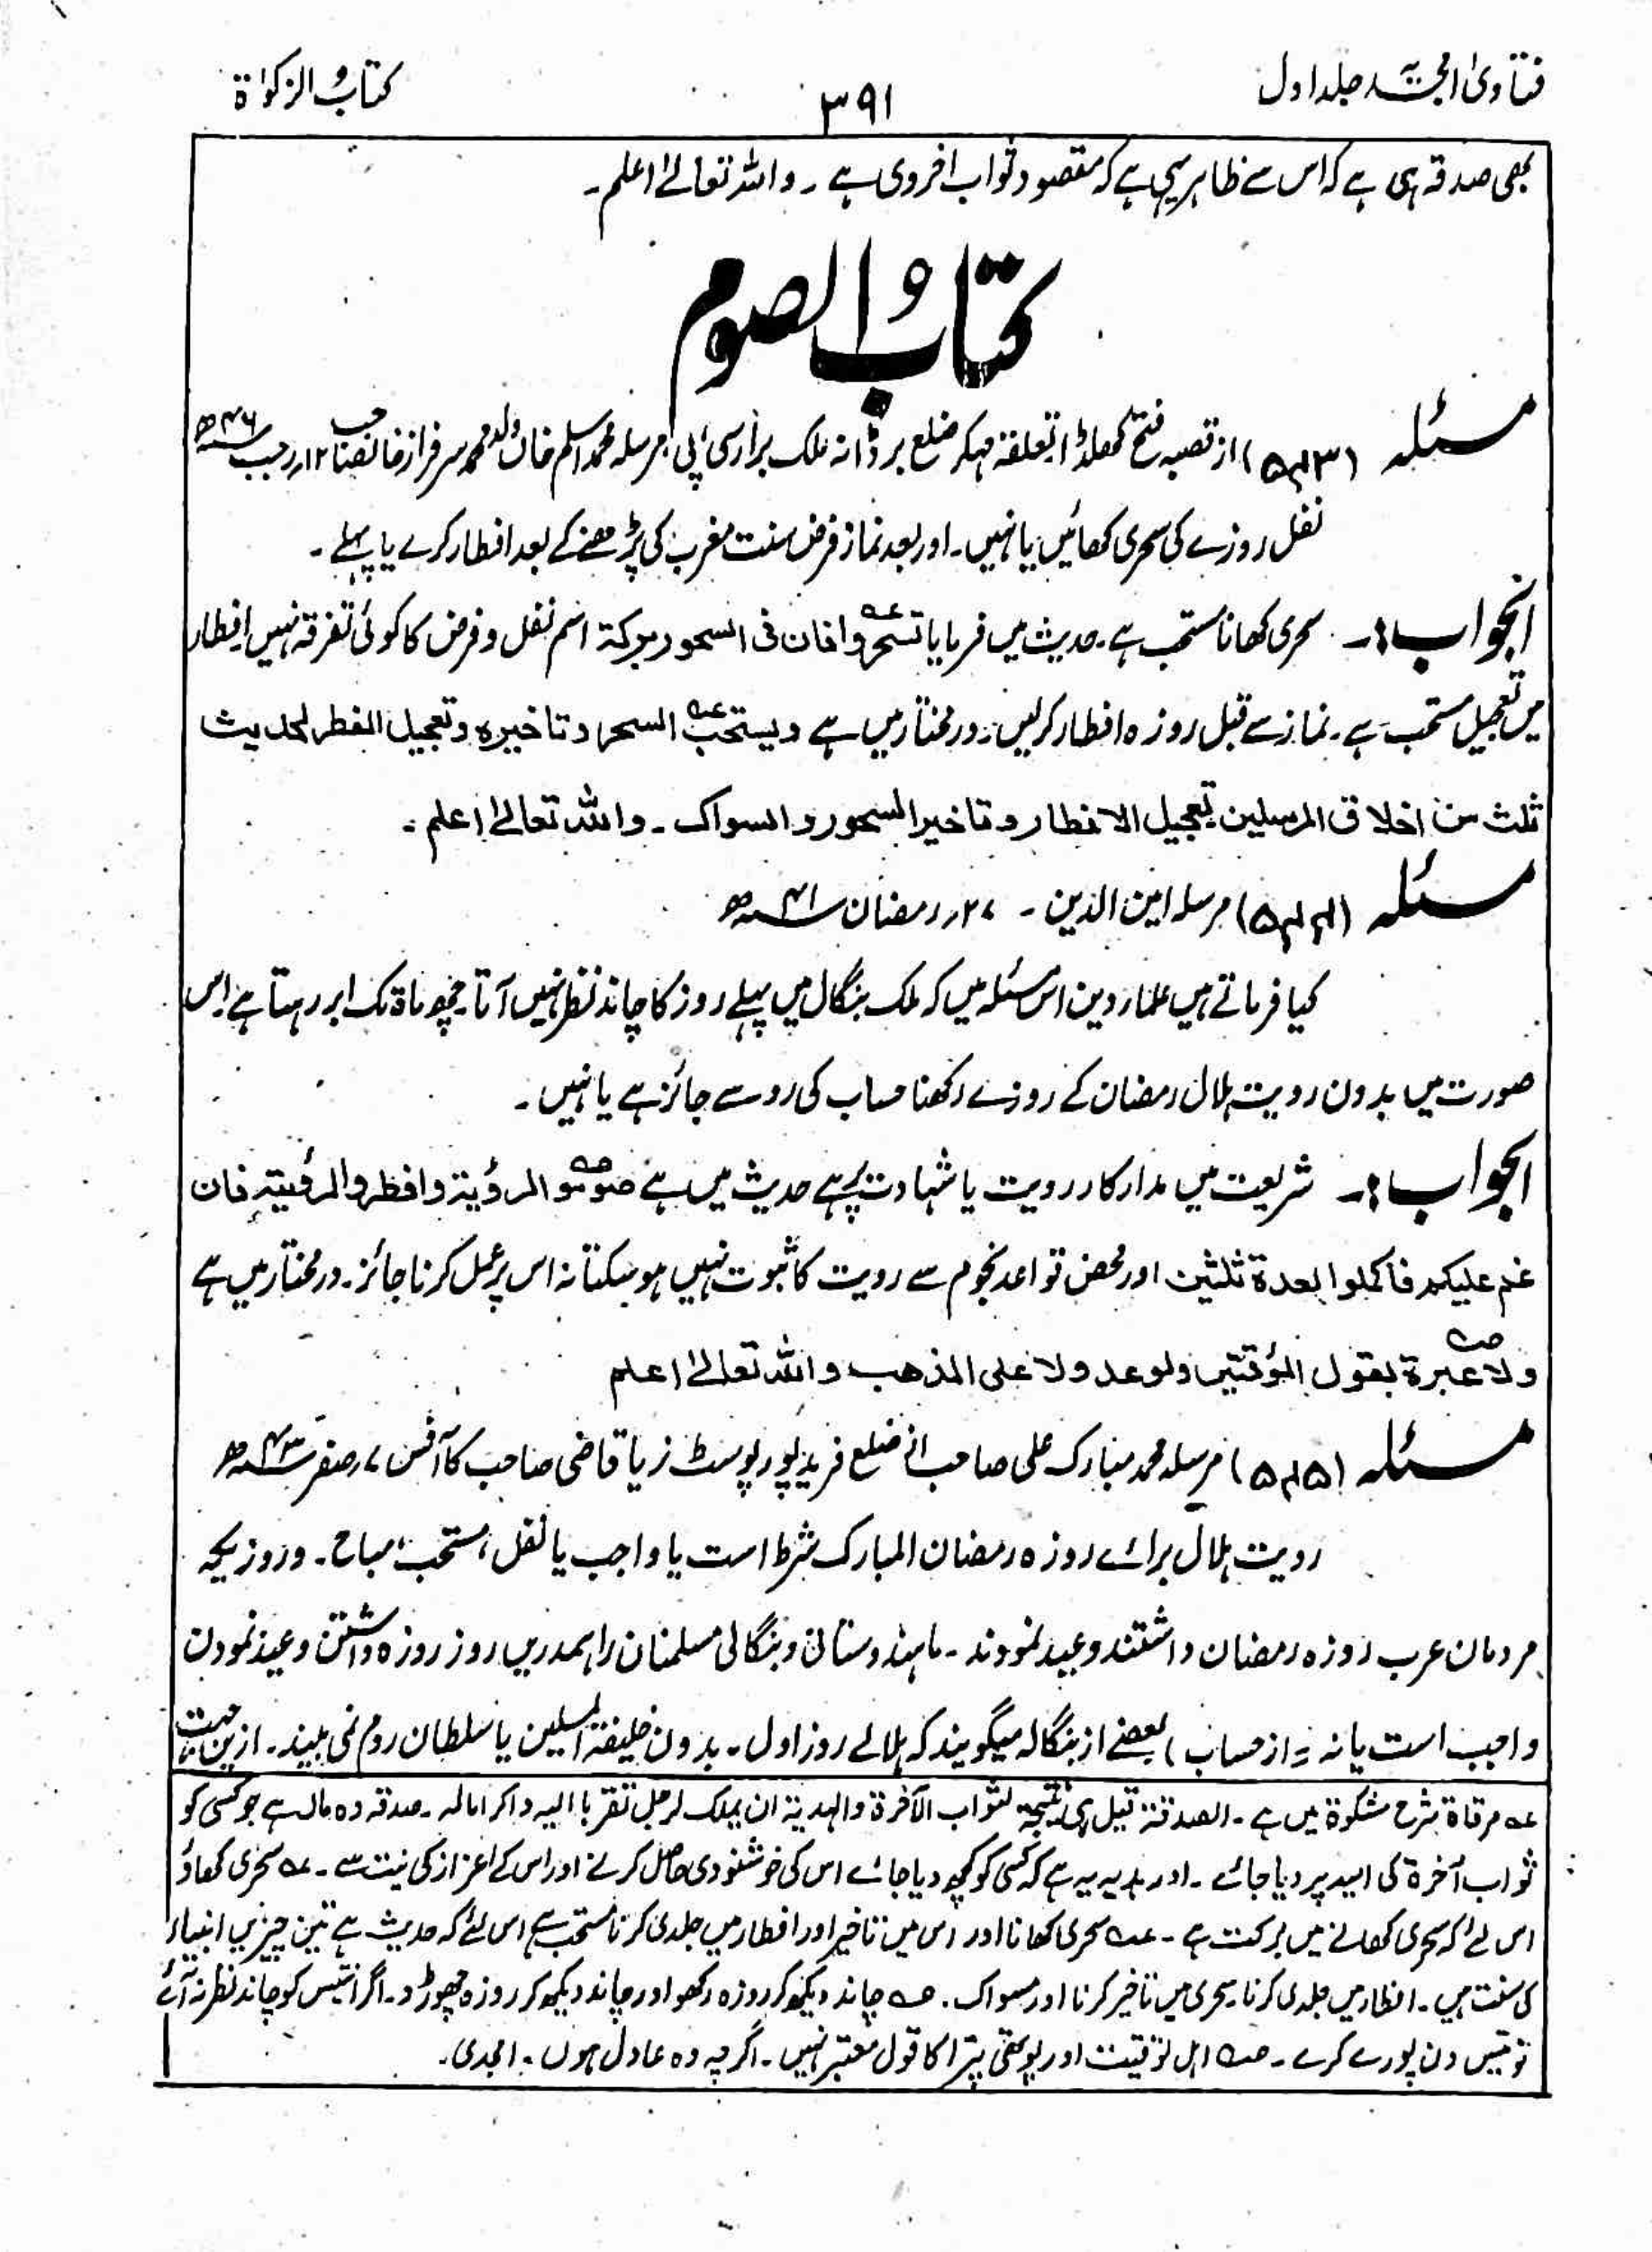 فتاویٰ امجدیہ جلد اول
۳۹۱
کتابُ الزکوٰۃ
بھی صدقہ ہی ہے کہ اس سے ظاہر یہی ہے کہ مقصود ثواب اخروی ہے ۔ واللہ تعالےٰ اعلم۔
کتابُ الصوم
مسئلہ (۵۴۳) از قصبہ فتح کھلڈا تعلقہ مہکر ضلع برڈانہ ملک برار سی پی مرسلہ محمد اسلم خاں ولد محمد سرفراز خانصاحب ۱۲؍رجب ۴۶ھ
نفل روزے کی سحری کھائیں یا نہیں۔ اور بعد نماز فرض سنت مغرب کی پڑھنے کے بعد افطار کرے یا پہلے ۔
الجواب:۔ سحری کھانا مستحب ہے۔ حدیث میں فرمایا تسحروا فان فی السحور برکۃ اسم نفل و فرض کا کوئی تفرقہ نہیں افطار
میں تعجیل مستحب ہے۔ نماز سے قبل روزہ افطار کرلیں۔ درمختار میں ہے ویستحب السحور وتاخیرہ وتعجیل الفطر لحدیث
ثلث من اخلاق المرسلین تعجیل الافطار وتاخیر السحور والسواک ۔ واللہ تعالےٰ اعلم ۔
مسئلہ (۵۴۴) مرسلہ امین الدین ۔ ۲۷؍رمضان ۴۱ھ
کیا فرماتے ہیں علمار دین اس مسئلہ میں کہ ملک بنگال میں پہلے روز کا چاند نظر نہیں آتا۔ چھو ماہ تک ابر رہتا ہے اس
صورت میں بدون رویت ہلال رمضان کے روزے رکھنا حساب کی روسے جائز ہے یا نہیں ۔
الجواب:۔ شریعت میں مدار کار رویت یا شہادت پر ہے حدیث میں ہے صوموا لرؤیۃ وافطروا لرؤیتہ فان
غم علیکم فاکملوا العدۃ ثلثین اور محض قواعد نجوم سے رویت کا ثبوت نہیں ہوسکتا نہ اس پر عمل کرنا جائز۔ درمختار میں ہے
ولا عبرۃ بقول المؤقتین ولو عدولا علی المذھب واللہ تعالےٰ اعلم
مسئلہ (۵۴۵) مرسلہ محمد مبارک علی صاحب از ضلع فرید پور پوسٹ زیا قاضی صاحب کا آفس ۷؍صفر ۴۳ھ
رویت ہلال برائے روزہ رمضان المبارک شرط است یا واجب یا نفل، مستحب، مباح۔ وروزیکہ
مردمان عرب روزہ رمضان داشتند وعید نمودند ۔ ماہندوستانی و بنگالی مسلمنان را ہمدریں روز روزہ داشتن وعید نمودن
واجب است یا نہ (از حساب) بعضے از بنگالہ میگویند کہ ہلالے روز اول ۔ بدون خلیفۃ المسلین یا سلطان روم نمی بیند ۔ ازین جہت
عہ مرقاۃ شرح مشکوۃ میں ہے ۔ الصدقۃ قیل ہی لثواب الآخرۃ والہدیۃ ان یملک لرجل تقربا الیہ واکراما لہ ۔ صدقہ وہ مال ہے جو کسی کو
ثواب آخرۃ کی امید پر دیا جائے ۔ اور ہدیہ یہ ہے کہ کسی کو کچھ دیا جائے اس کی خوشنودی حاصل کرنے اور اس کے اعزاز کی نیت سے ۔ عہ سحری کھاؤ
اس لئے کہ سحری کھانے میں برکت ہے ۔ عہ سحری کھانا اور اس میں تاخیر اور افطار میں جلدی کرنا مستحب ہے اس لئے کہ حدیث ہے تین چیزیں انبیاء
کی سنت ہیں ۔ افطار میں جلدی کرنا سحری میں تاخیر کرنا اور مسواک ۔ صہ چاند دیکھ کر روزہ رکھو اور چاند دیکھ کر روزہ چھوڑو۔ اگر انتیس کو چاند نظر نہ آئے
تو تیس دن پورے کرے ۔ صہ اہل توقیت اور پوتھی پترا کا قول معتبر نہیں ۔ اگرچہ وہ عادل ہوں ۔ امجدی ۔